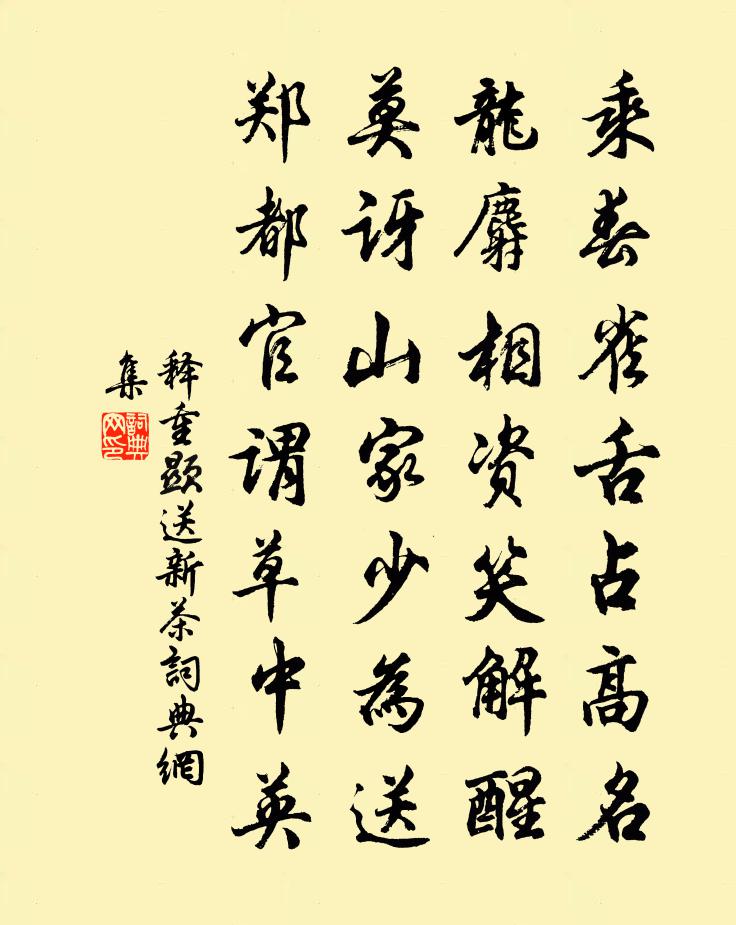 乘春雀舌占高名
龍麝相资笑解醒
莫讶山家少為送
郑都官谓草中英
释重顯送新茶詞典網
集
詞典
网印